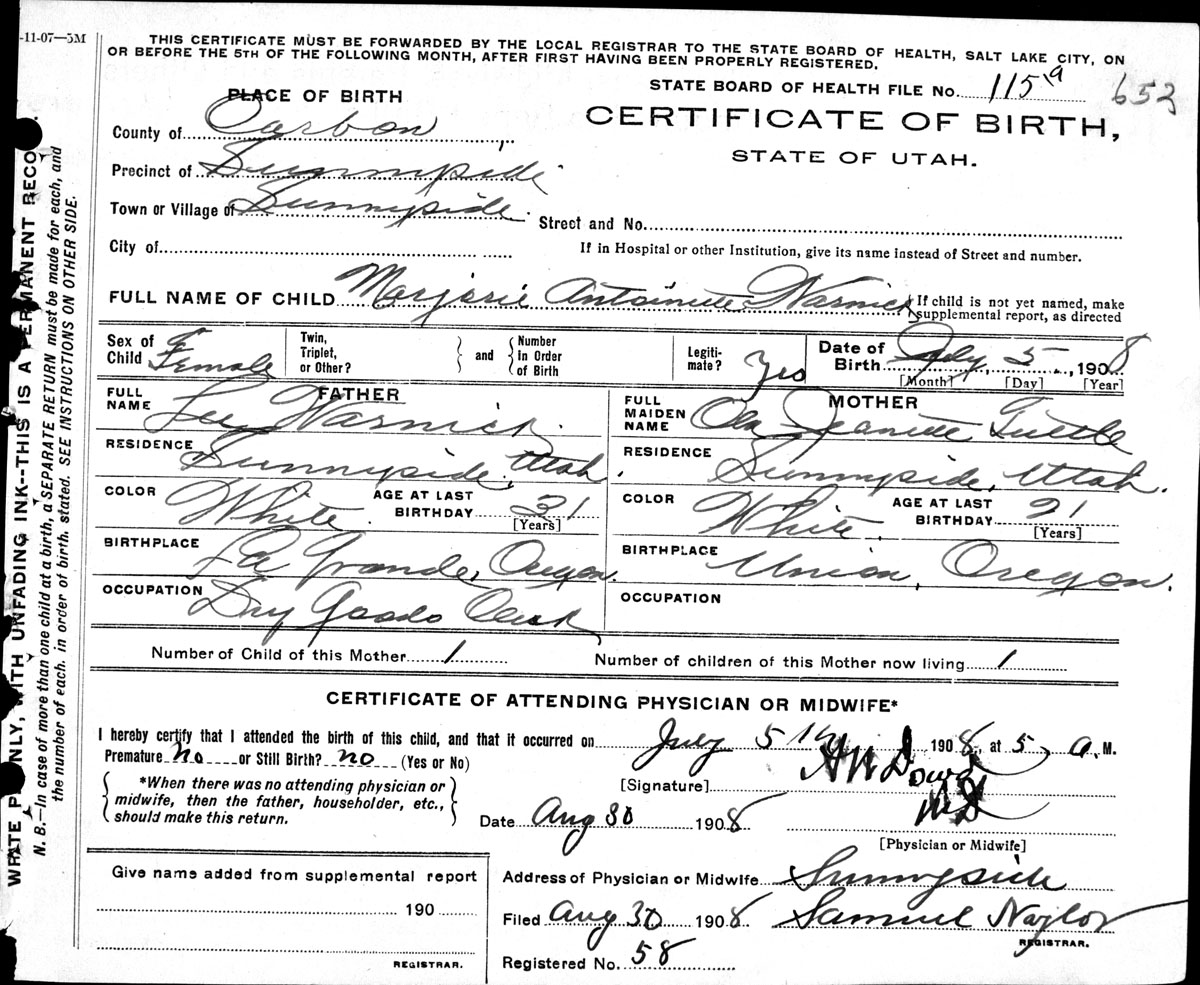 -11-07—5M
THIS CERTIFICATE MUST BE FORWARDED BY THE LOCAL REGISTRAR TO THE STATE BOARD OF HEALTH, SALT LAKE CITY, ON
OR BEFORE THE 5TH OF THE FOLLOWING MONTH, AFTER FIRST HAVING BEEN PROPERLY REGISTERED.
STATE BOARD OF HEALTH FILE No. 115 a 653
PLACE OF BIRTH
CERTIFICATE OF BIRTH,
STATE OF UTAH.
County of Carbon
Precinct of Sunnyside
Town or Village of Sunnyside
Street and No.
City of
If in Hospital or other Institution, give its name instead of Street and number.
FULL NAME OF CHILD Marjorie Antoinette Warnick
If child is not yet named, make
supplemental report, as directed
Sex of Child Female
Twin, Triplet, or Other? and Number In Order of Birth
Legiti-mate? Yes
Date of Birth July 5, 1908
[Month] [Day] [Year]
FATHER
FULL NAME Lee Warnick
RESIDENCE Sunnyside, Utah
COLOR White AGE AT LAST BIRTHDAY 31
[Years]
BIRTHPLACE La Grande, Oregon
OCCUPATION Dry Goods Clerk
MOTHER
FULL MAIDEN NAME Ola Jeanette Tuttle
RESIDENCE Sunnyside, Utah.
COLOR White AGE AT LAST BIRTHDAY 21
[Years]
BIRTHPLACE Union, Oregon.
OCCUPATION
Number of Child of this Mother 1 Number of children of this Mother now living 1
CERTIFICATE OF ATTENDING PHYSICIAN OR MIDWIFE*
I hereby certify that I attended the birth of this child, and that it occurred on July 5th 1908, at 5, a.M.
Premature no or Still Birth? no (Yes or No)
*When there was no attending physician or
midwife, then the father, householder, etc.,
should make this return.
[Signature] Dowd
MD
Date Aug 30 1908
[Physician or Midwife]
Give name added from supplemental report
190
REGISTRAR.
Address of Physician or Midwife Sunnyside
Filed Aug 30 1908 Samuel Naylor
REGISTRAR.
Registered No. 58
WRITE PLAINLY, WITH UNFADING INK--THIS IS A PERMANENT RECO
N. B.—In case of more than one child at a birth, a SEPARATE RETURN must be made for each, and
the number of each, in order of birth, stated. SEE INSTRUCTIONS ON OTHER SIDE.